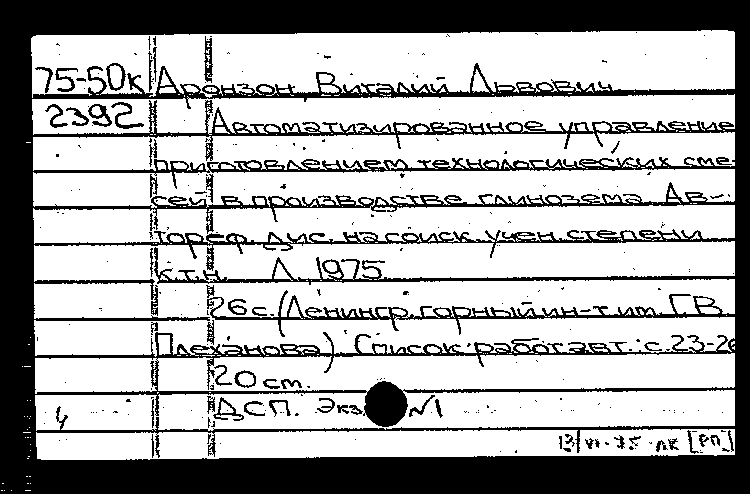 75-50к Аронзон, Виталий Львович.
2392 Автоматизированное управление
приготовлением технологических сме-
сей в производстве глинозема. Ав-
тореф. дис. на соиск. учен. степени
к.т.н. Л., 1975.
26 с. (Ленингр. горный ин-т им. Г.В.
Плеханова). Список работ авт.: с. 23-26
20 см.
ДСП. Экз. №1
13/VI-75 лк [РП]